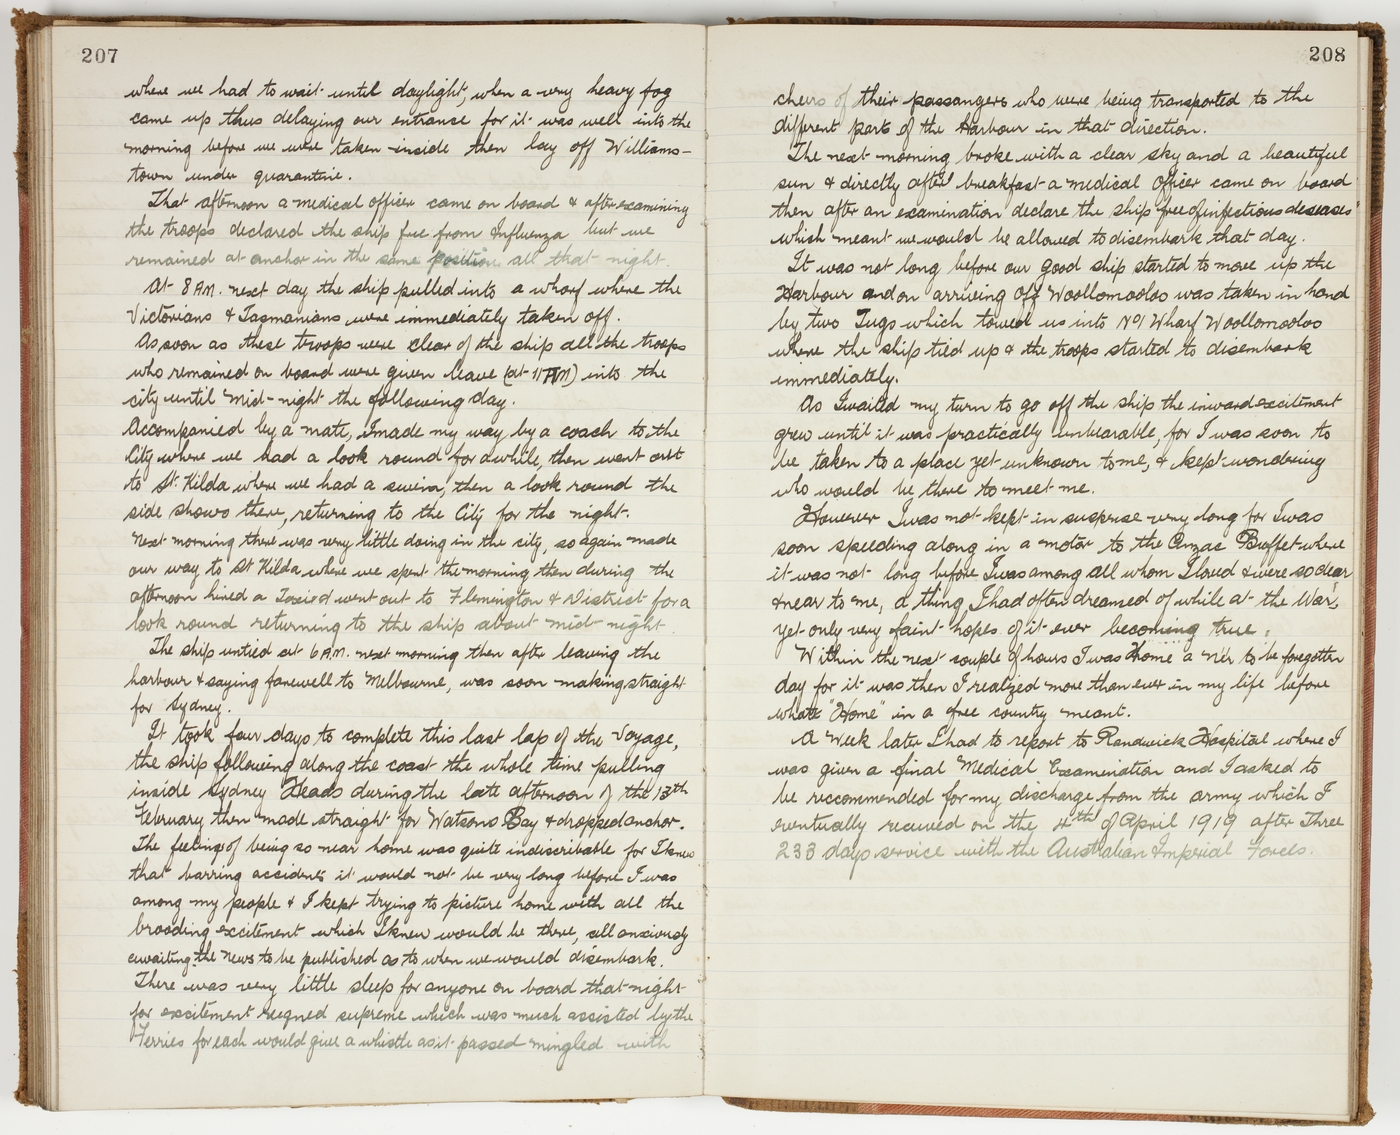 207
where we had to wait until daylight, when a very heavy fog
came up thus delaying our entranse for it was well into the
morning before we were taken inside then lay off Williams-
town under quarantine.
That afternoon a medical officer came on board & after examining
the troops declared the ship free from Influenza but we
remained at anchor in the same position all that night.
At 8 A.M. next day the ship pulled into a wharf where the
Victorians & Tasmanians were immediately taken off.
As soon as these troops were clear of the ship all the troops
who remained on board were given leave (at 11 AM) into the
city until mid-night the following day.
Accompanied by a mate, I made my way by a coach to the
City where we had a look round for awhile, then went out
to St. Kilda where we had a swim, then a look round the
side shows there, returning to the City for the night.
Next morning there was very little doing in the city, so again made
our way to St Kilda where we spent the morning then during the
afternoon hired a Taxi & went out to Flemington & District for a
look round returning to the ship about mid-night.
The ship untied at 6 A.M. next morning then after leaving the
harbour & saying farewell to Melbourne, was soon making straight
for Sydney.
It took four days to complete this last lap of the Voyage,
the ship following along the coast the whole time pulling
inside Sydney Heads during the late afternoon of the 13th
February then made straight for Watsons Bay & dropped anchor.
The feeling of being so near home was quite indiscribable for I knew
that barring accidents it would not be very long before I was
among my people & I kept trying to picture home with all the
brooding excitement which I knew would be there, all anxiously
awaiting the news to be published as to when we would disembark.
There was very little sleep for anyone on board that night
for excitement reigned supreme which was much assisted by the
Ferries for each would give a whistle as it passed mingled with
208
cheers of their passangers who were being transported to the
different parts of the Harbour in that direction.
The next morning broke with a clear sky and a beautiful
sun & directly after breakfast a medical Officer came on board
then after an examination declare the ship "free of infectious deseases"
which meant we would be allowed to disembark that day.
It was not long before our good ship started to move up the
Harbour and on arriving off Woollomooloo was taken in hand
by two Tugs which towed us into No 1 Wharf Woollomooloo
where the ship tied up & the troops started to disembark
immediately.
As I waited my turn to go off the ship the inward excitement
grew until it was practically unbearable, for I was soon to
be taken to a place yet unknown to me, & kept wondering
who would be there to meet me.
However I was not kept in suspense very long for I was
soon speeding along in a motor to the Anzac Buffet where
it was not long before I was among all whom I loved & were so dear
& near to me, a thing I had often dreamed of while at the War,
yet only very faint hopes of it ever becoming true.
Within the next couple of hours I was Home a ne'r to be forgotten
day for it was then I realized more than ever in my life before
what "Home" in a free country meant.
A Week later I had to report to Randwick Hospital where I
was given a final Medical Examination and I asked to
be reccommended for my discharge from the army which I
eventually received on the 4th of April 1919 after Three
233 days service with the Australian Imperial Forces.